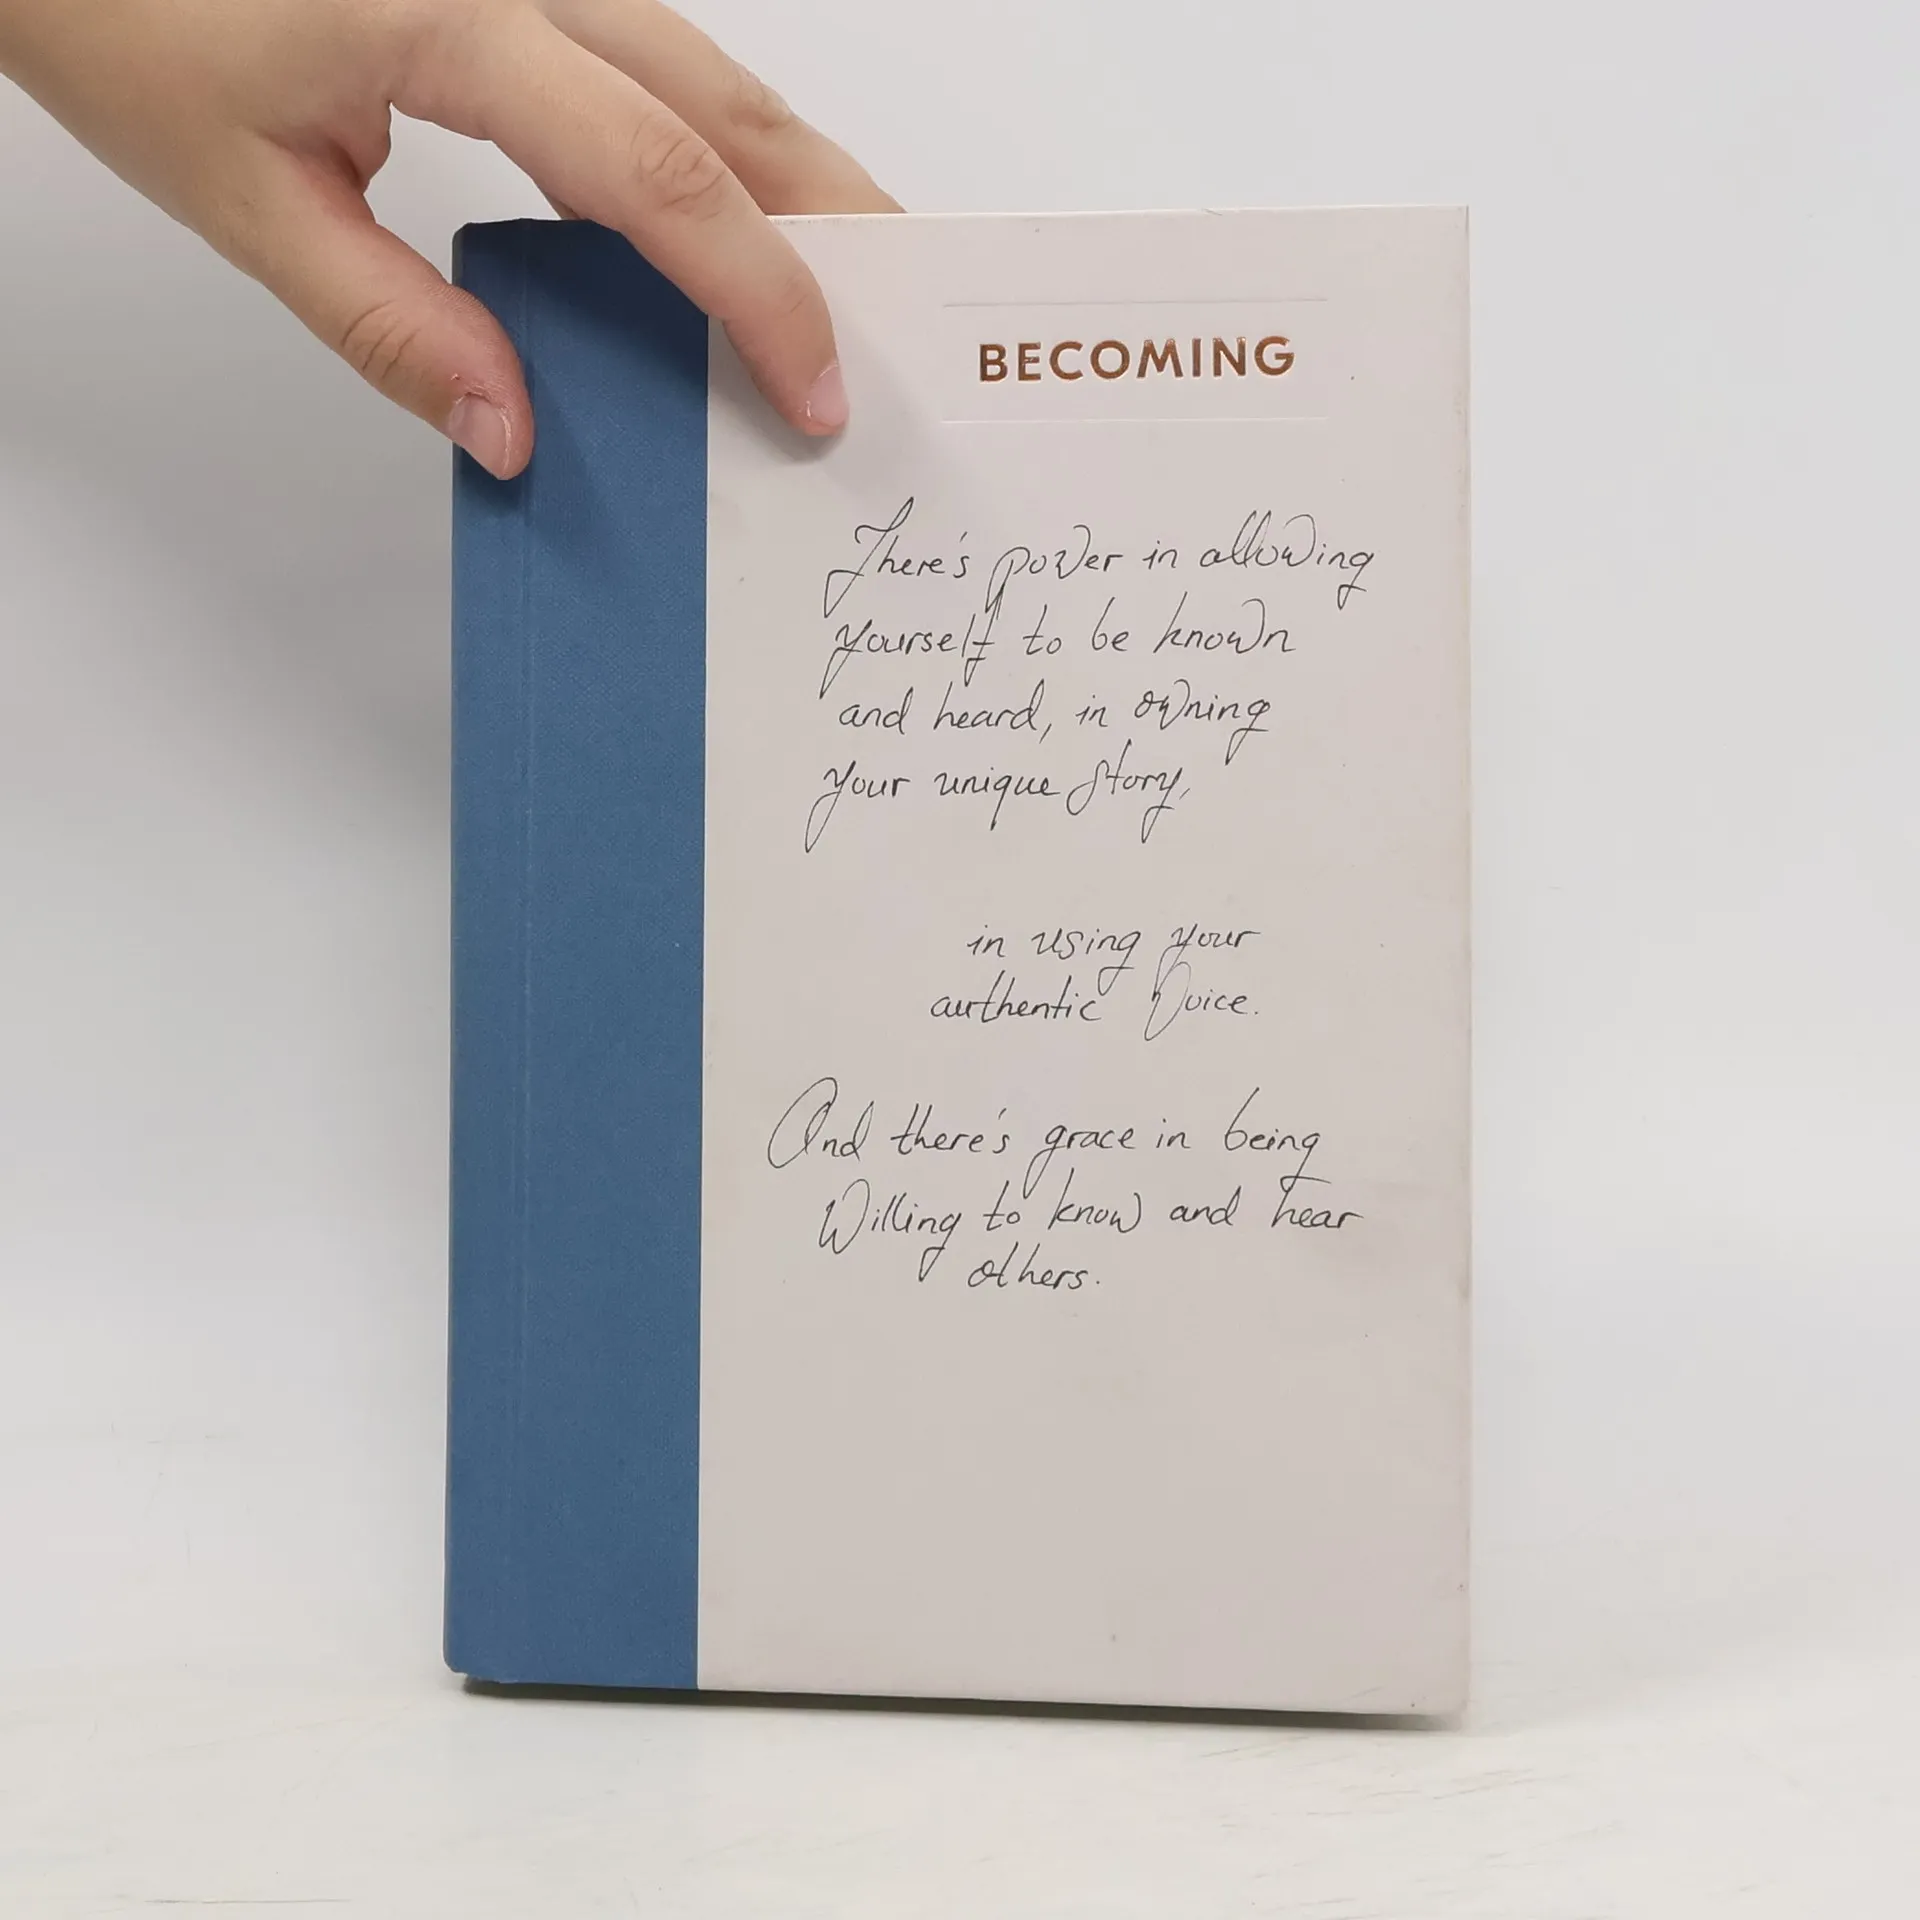 BECOMING
There's power in allowing
yourself to be known
and heard, in owning
your unique story,
in using your
authentic voice.
And there's grace in being
willing to know and hear
others.